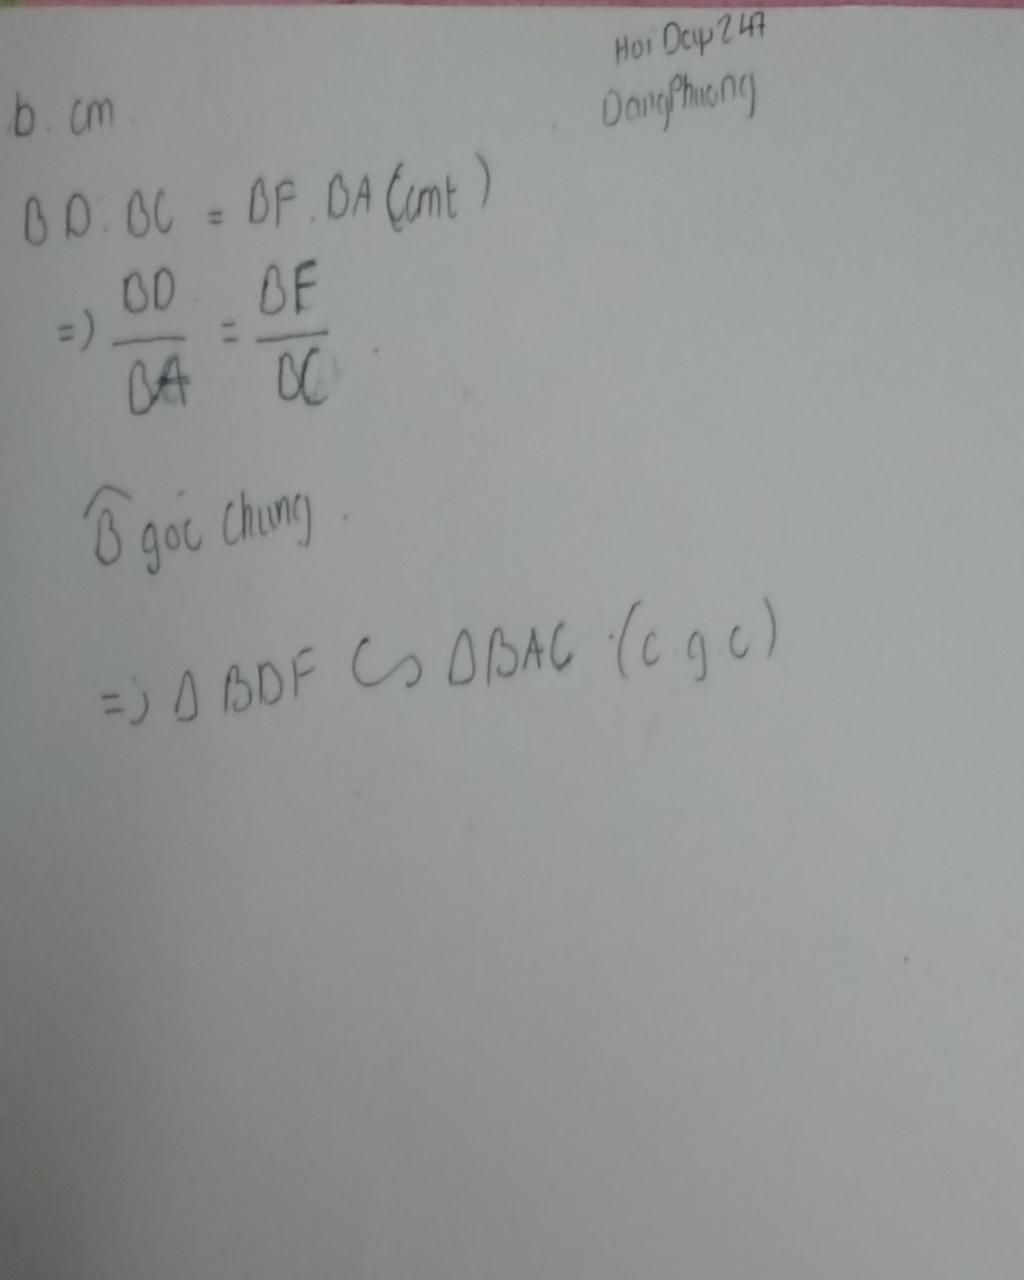 Hoi Dap 247
DangPhuong
b. cm
BD.BC = BF.BA (cmt)
=> BD/BA = BF/BC
B̂ góc chung.
=> Δ BDF ∽ ΔBAC (c.g.c)